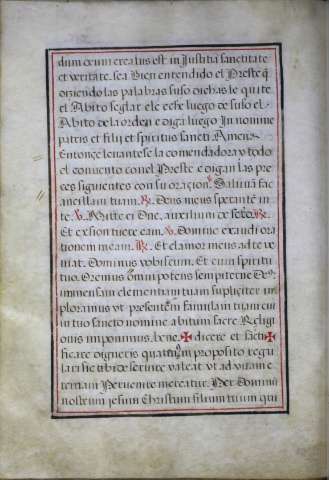 dum deum creatus est in Justitia sanctitate
et veritate. sea Bien entendido el Preste q̄
diziendo las palabras suso dichas le quite
el Abito seglar ele eche luego de suso el
Abito dela orden e diga luego In nomine
patris et filij et spiritus sancti Amen
Entonçe levantese la comendadora y todo
el convento con el Preste e digan las pre
ces siguientes con su oracion. Salvā fac
ancillam tuam. ℟. Deus meus sperantē in
te. ℣. Mitte ei Dñe, auxiliū de scto. ℟.
Et exsion tuere eam. ℣. Domine exaudi ora
tionem meam. ℟. Et clamor meus ad te ve
niat. Dominus vobiscum. Et cum spiritu
tuo. Oremus Omnipotens sempiterne Deus
immensam clementiam tuam supliciter im
ploramus vt presentem famulam tuam cui
in tuo sancto nomine abitum sacre Religi
onis imponimus, bene ✠ dicere et sancti ✠
ficare digneris quatenus proposito regu
lari sic tibi deservire valeat vt ad vitam e
ternam Pervenire mereatur. Per Dominū
nostrum jesum Christum filium tuum qui